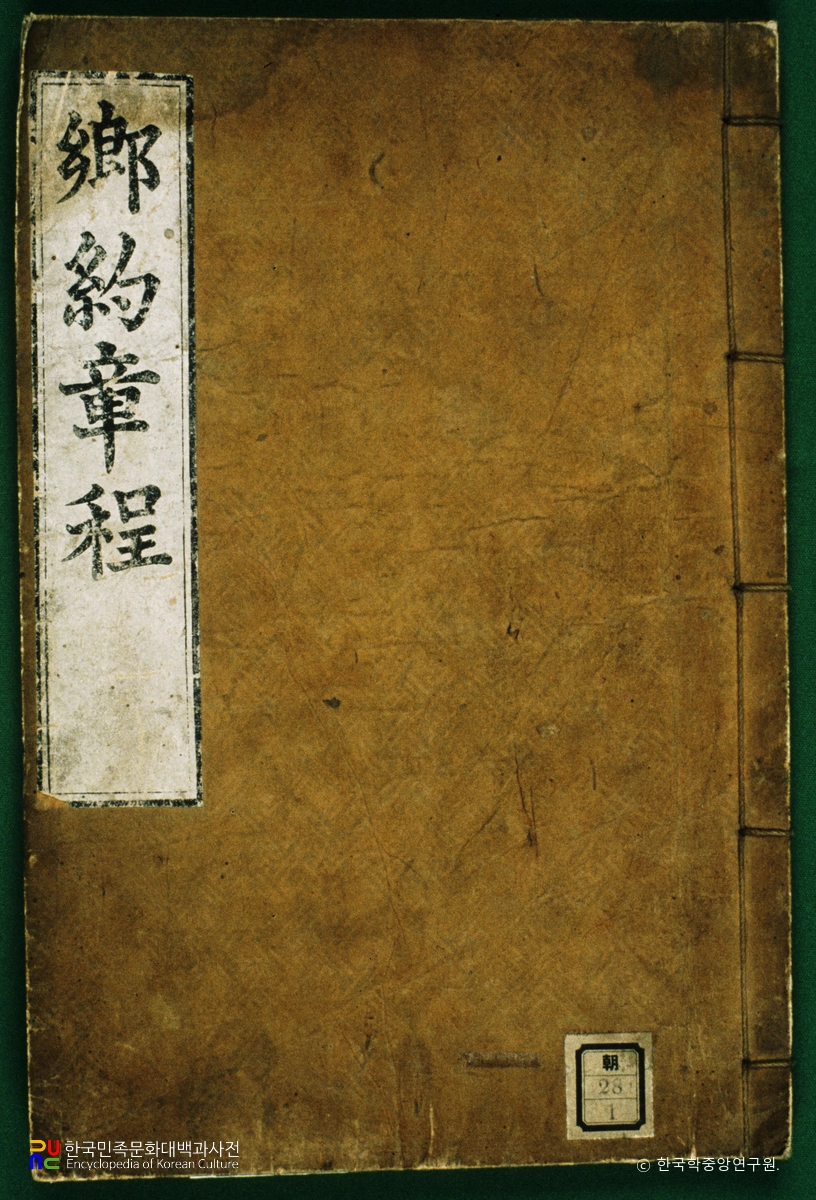 鄕約章程
朝
28
1
한국민족문화대백과사전
Encyclopedia of Korean Culture
© 한국학중앙연구원.